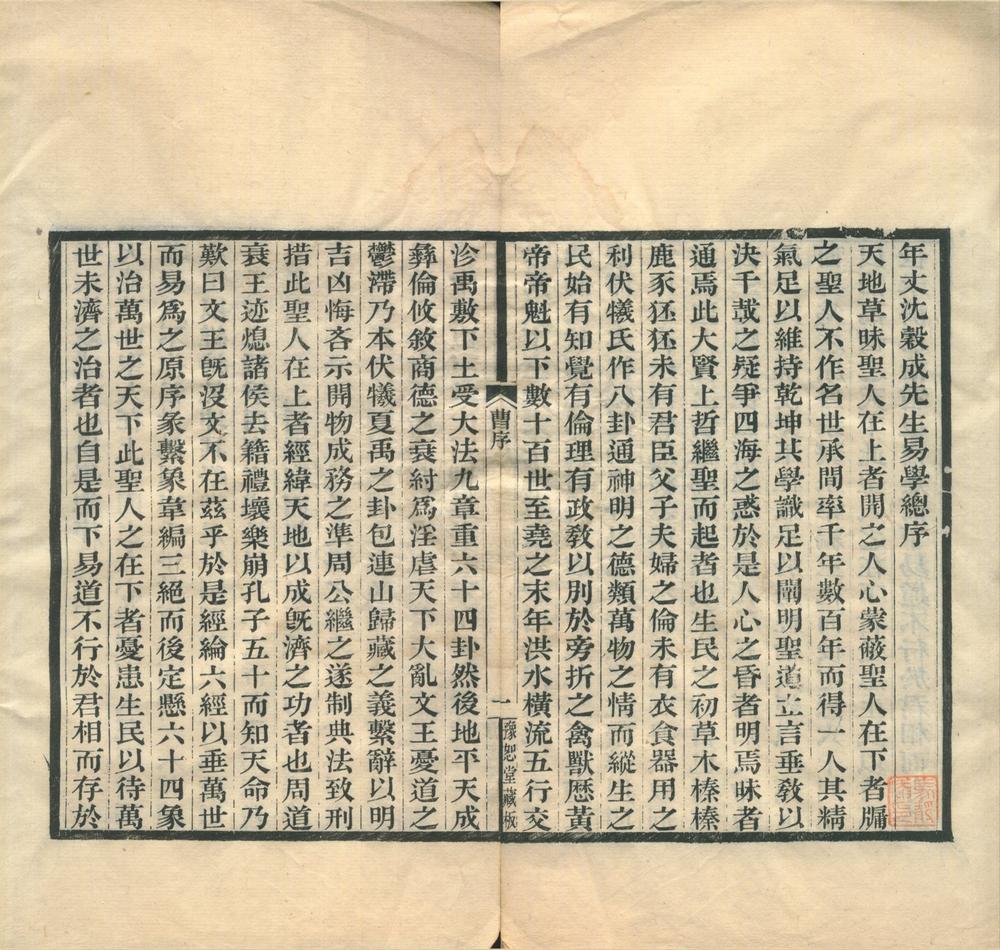 年丈沈穀成先生易學總序
天地草昧聖人在上者開之人心蒙蔽聖人在下者牖
之聖人不作名世承間率千年數百年而得一人其精
氣足以維持乾坤其學識足以闡明聖道立言垂敎以
決千載之疑爭四海之惑於是人心之昏者明焉昧者
通焉此大賢上哲繼聖而起者也生民之初草木榛榛
鹿豕狉狉未有君臣父子夫婦之倫未有衣食器用之
利伏犧氏作八卦通神明之德類萬物之情而縱生之
民始有知覺有倫理有政敎以別於旁折之禽獸歷黃
帝帝魁以下數十百世至堯之末年洪水橫流五行交
曹序
一
豫恕堂藏板
沴禹敷下土受大法九章重六十四卦然後地平天成
彝倫攸敘商德之衰紂爲淫虐天下大亂文王憂道之
鬱滯乃本伏犧夏禹之卦包連山歸藏之義繫辭以明
吉凶悔吝示開物成務之準周公繼之遂制典法致刑
措此聖人在上者經緯天地以成旣濟之功者也周道
衰王迹熄諸侯去籍禮壞樂崩孔子五十而知天命乃
歎曰文王旣沒文不在茲乎於是經綸六經以垂萬世
而易爲之原序彖繫象韋編三絕而後定懸六十四象
以治萬世之天下此聖人之在下者憂患生民以待萬
世未濟之治者也自是而下易道不行於君相而存於